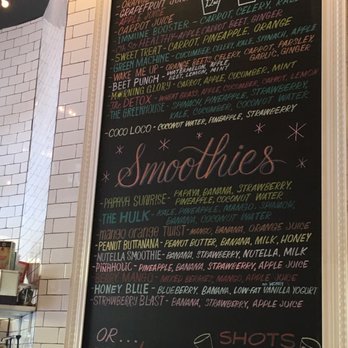 GRAPEFRUIT JUICE
APPLE JUICE
CARROT JUICE
IMMUNE BOOSTER - CARROT, CELERY, KALE
OH SO HEALTHY - APPLE, CARROT, BEET, GINGER
SWEET TREAT - CARROT, PINEAPPLE, ORANGE
GREEN MACHINE - CUCUMBER, CELERY, KALE, SPINACH, APPLE
WAKE ME UP - ORANGE, BEET, CELERY, CARROT, PARSLEY, GARLIC, GINGER
BEET PUNCH - WATERMELON, APPLE, BEET, LEMON, MINT
MORNING GLORY - CARROT, APPLE, CUCUMBER, MINT
The DETOX - WHEAT GRASS, APPLE, CARROT, LEMON
THE GREENHOUSE - SPINACH, PINEAPPLE, STRAWBERRY, KALE, CUCUMBER, COCONUT WATER
COCO LOCO - COCONUT WATER, PINEAPPLE, STRAWBERRY
Smoothies
PAPAYA SUNRISE - PAPAYA, BANANA, STRAWBERRY, PINEAPPLE, COCONUT WATER
THE HULK - KALE, PINEAPPLE, MANGO, SPINACH, BANANA, COCONUT WATER
mango orange TWIST - MANGO, BANANA, ORANGE JUICE
PEANUT BUTTANANA - PEANUT BUTTER, BANANA, MILK, HONEY
NUTELLA SMOOTHIE - BANANA, STRAWBERRY, NUTELLA, MILK
PINAHOLIC - PINEAPPLE, BANANA, STRAWBERRY, APPLE JUICE
MANGO - MIXED BERRIES, MANGO, APPLE JUICE
HONEY BLUE - BLUEBERRY, BANANA, LOW-FAT VANILLA YOGURT
STRAWBERRY BLAST - BANANA, STRAWBERRY, APPLE JUICE
OR...
SHOTS